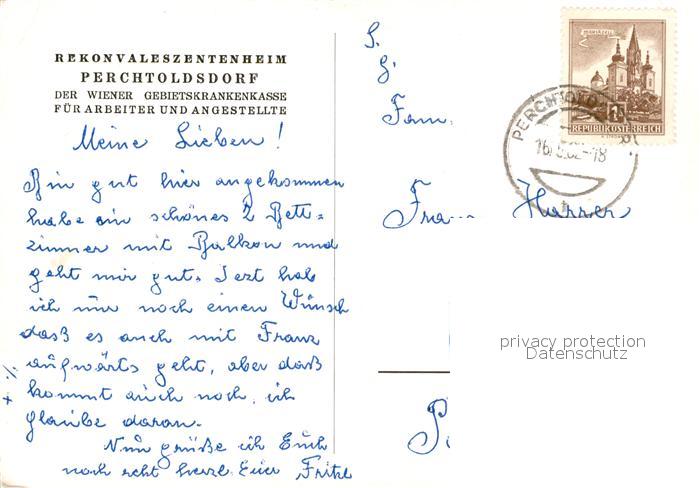 REKONVALESZENTENHEIM
PERCHTOLDSDORF
DER WIENER GEBIETSKRANKENKASSE
FÜR ARBEITER UND ANGESTELLTE
Meine Lieben!
Bin gut hier angekommen
habe ein schönes 2 Bett=
zimmer mit Balkon und
geht mir gut. Jezt hab
ich nur noch einen Wünsch
daß es auch mit Franz
aufwärts geht, aber daß
kommt auch noch, ich
glaube daran.
Nun grüße ich Euch
noch recht herzl. Euer Fritzl
S.
G.
Fam.
Fra Harrer
P
PERCHTOLDSD
REPUBLIK ÖSTERREICH
privacy protection
Datenschutz